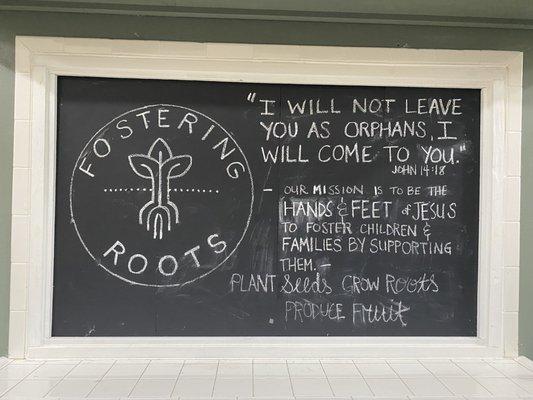 FOSTERING
ROOTS
"I WILL NOT LEAVE
YOU AS ORPHANS, I
WILL COME TO YOU."
JOHN 14:18
- OUR MISSION IS TO BE THE
HANDS & FEET of JESUS
TO FOSTER CHILDREN &
FAMILIES BY SUPPORTING
THEM. -
PLANT Seeds GROW ROOTS
PRODUCE FRUIT